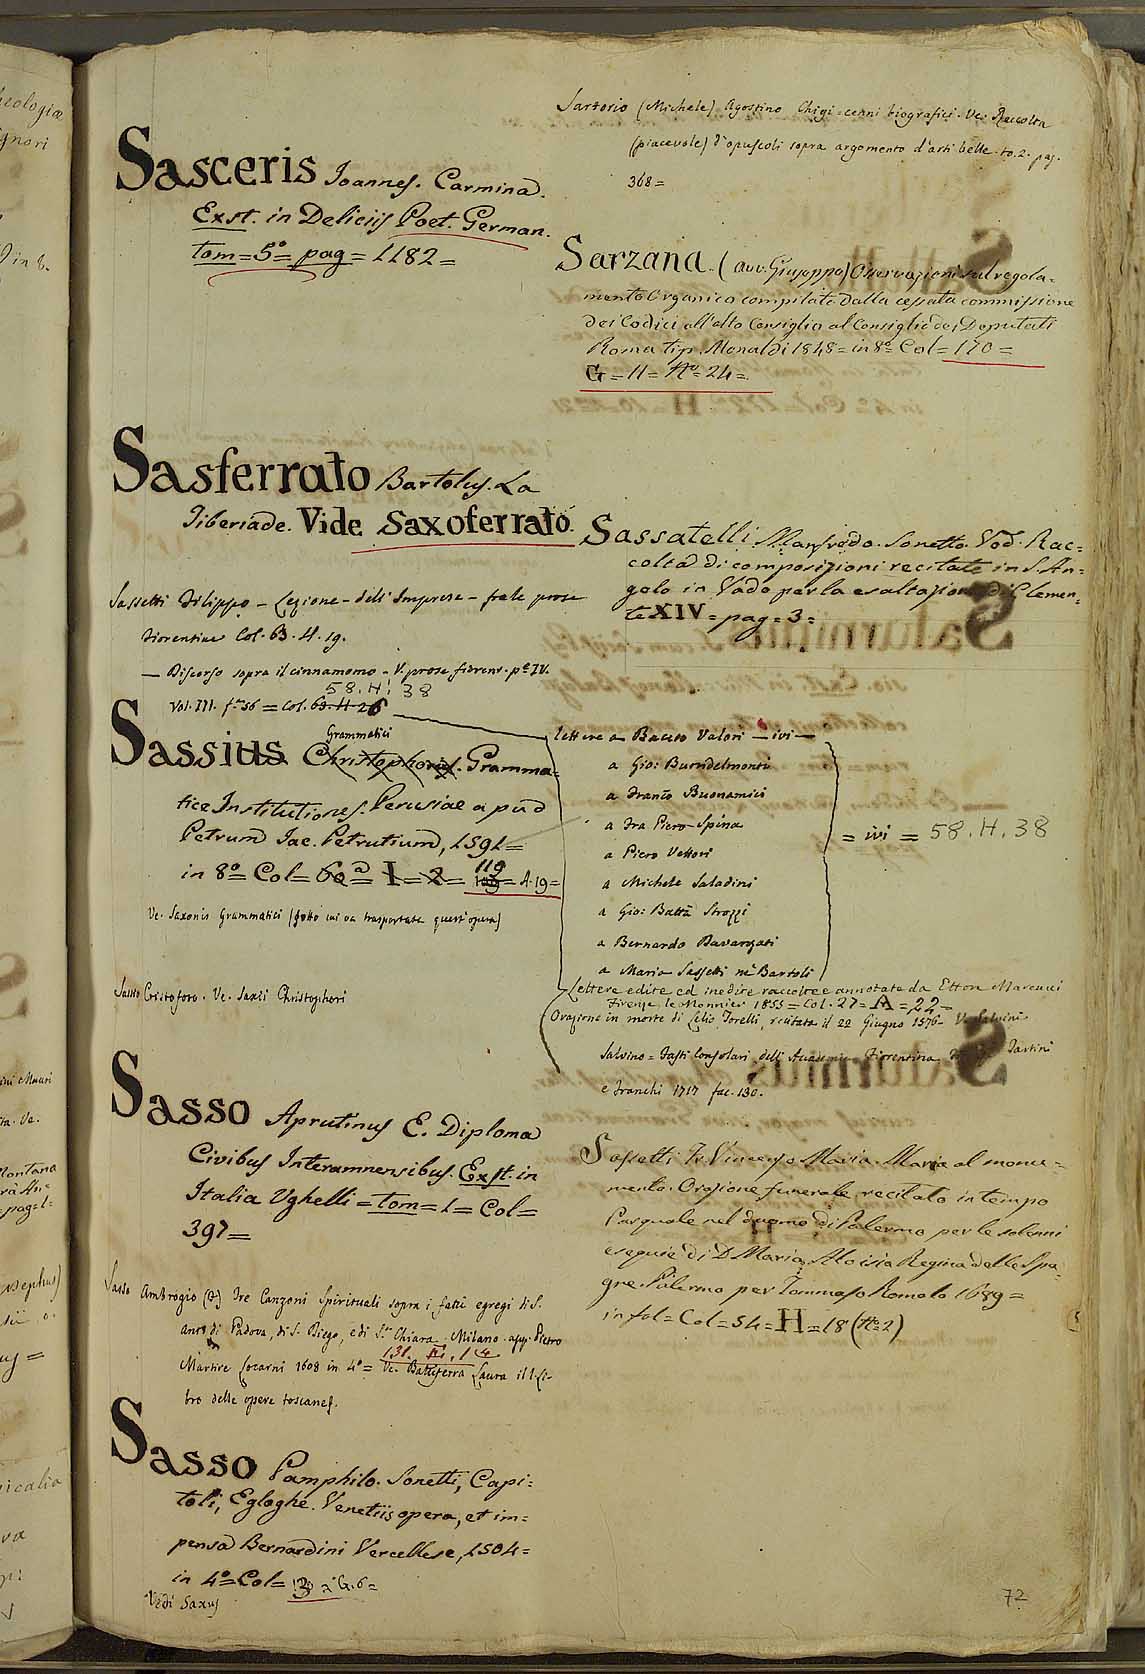 Sasceris Joannes. Carmina.
Exst. in Deliciis Poet. German.
tom=5º= pag=1182=
Sasferrato Bartolus. La
Tiberiade. Vide Saxoferrato.
Sassetti Filippo - Lezione - dell'Imprese - fra le prose
fiorentine Col. 63. H. 19.
— Discorso sopra il cinnamomo - V. prose fiorent. pe IV.
58. H. 38
Vol. III. = Col. 63. H 26
Grammatici
Sassius Christophorus. Gramma=
tice Institutiones. Perusiae apud
Petrum Jac. Petrutium, 1591=
119
in 8º= Col= 60 a= I= 2= = A. 19=
Ve. Saxonis Grammatici (sotto cui va trasportata quest'opera)
Sasso Cristoforo. Ve. Saxii Christophori
Sasso Aprutinus E. Diploma
Civibus Interamnensibus. Exst. in
Italia Ughelli = tom=1= Col=
397=
Sasso Ambrogio (da) Tre Canzoni Spirituali sopra i fatti egregi di S.
Anto di Padova, di S. Diego, e di S.ta Chiara. Milano. app. Pietro
131. 14
Martire Locarni 1608 in 4º= Ve. Battiferra Laura il I. Li-
bro delle opere toscanes.
Sasso Pamphilo. Sonetti, Capi=
toli, Egloghe. Venetiis opera, et im=
pensa Bernardini Vercellese, 1504=
in 4º= Col= G. 6=
Vedi Saxus
Sartorio (Michele) Agostino Chigi cenni biografici. Ve. Raccolta
(piacevole) d'opuscoli sopra argomento d'arti belle. to. 2. pag.
368=
Sarzana. (avv. Giuseppe) Osservazioni sul regola-
mento Organico compilate dalla cessata commissione
dei Codici all'alto Consiglio al Consiglio dei Deputati
Roma tip. Monaldi 1848= in 8º Col= 170=
G=11= Nº 24=
Sassatelli Manfredo. Sonetto. Ved. Rac=
colta di composizioni recitate in S. An=
gelo in Vado per la esaltazione di Clemen=
te XIV= pag=3=
Lettere a Baccio Valori — ivi —
a Gio: Buondelmonti
a Franco Buonamici
a Fra Piero Spina
a Piero Vettori
= ivi = 58. H. 38
a Michele Saladini
a Gio: Batta Strozzi
a Bernardo Davanzati
a Maria Sassetti ne' Bartoli
Lettere edite ed inedite raccolte e annotate da Ettore Marcucci
Firenze, le Monnier 1855= Col. 27= A =22=
Orazione in morte di Lelio Torelli, recitata il 22 Giugno 1576- V. Salvini
Salvino= Fasti Consolari dell'Accademia Fiorentina Tartini
e Franchi 1717 fac. 130.
Sassetti Fr. Vincenzo Maria. Maria al monu=
mento. Orazione funerale recitata in tempo
Pasquale nel duomo di Palermo per le solenni
esequie di D. Maria Aloisia Regina delle Spa=
gne. Palermo per Tommaso Romolo 1689=
in fol= Col=54= H=18 (Nº=2)
72